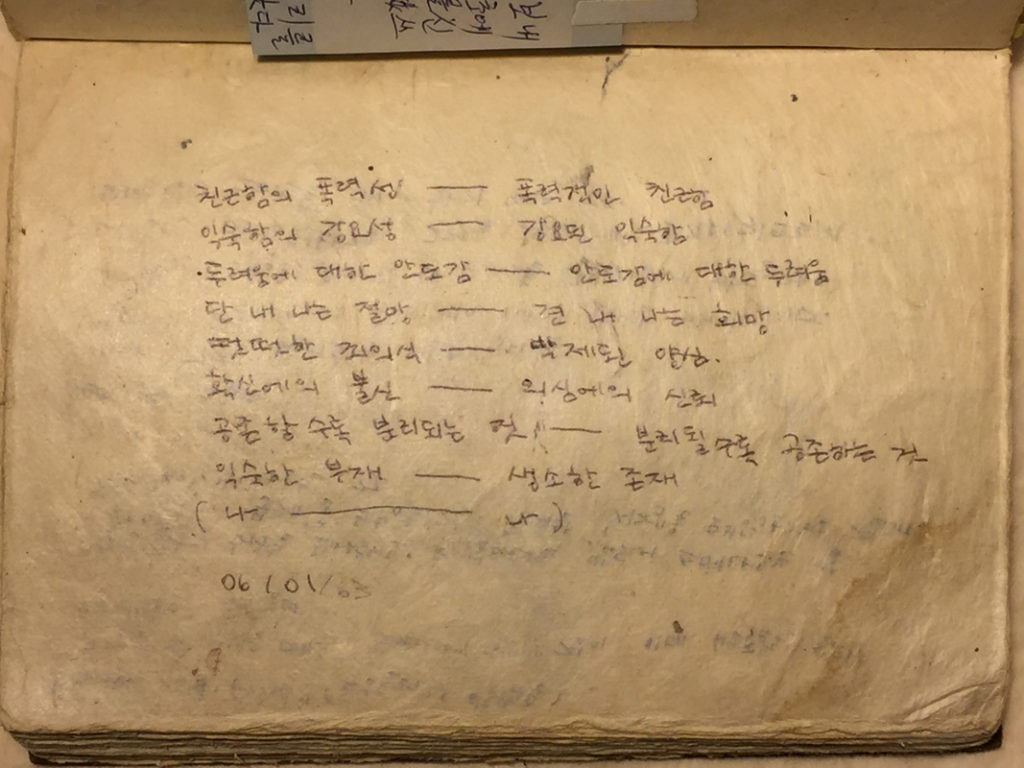 보내
줄에
물신
리를
친근함의 폭력성 — 폭력적인 친근함
익숙함의 강요성 — 강요된 익숙함
두려움에 대한 안도감 — 안도감에 대한 두려움
단 내 나는 절망 — 쓴 내 나는 희망
떳떳한 죄의식 — 박제된 양심.
확신에의 불신 — 의심에의 신뢰
공존할수록 분리되는 것 — 분리될수록 공존하는 것
익숙한 부재 — 생소한 존재
( 나 — 나 )
06/01/03